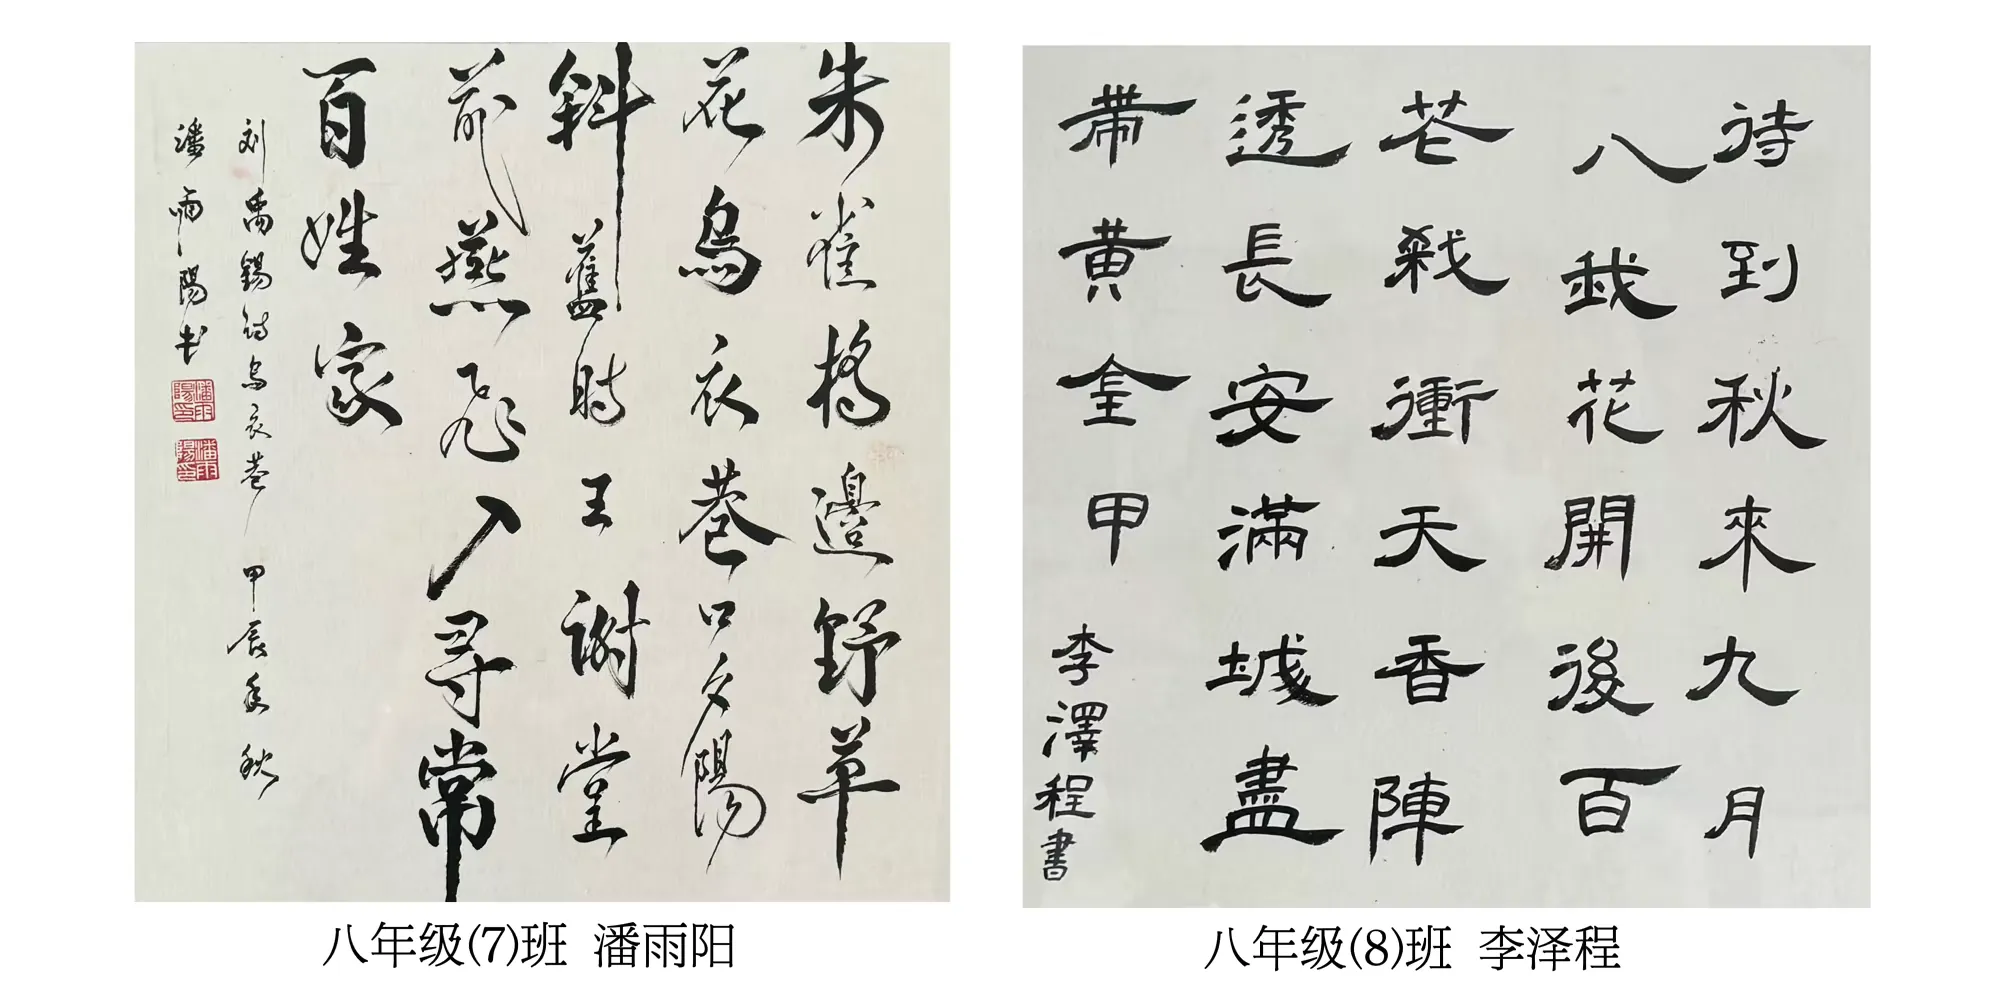 朱雀橋邊野草
花烏衣巷口夕陽
斜舊時王謝堂
前燕飛入尋常
百姓家
刘禹錫詩烏衣巷 甲辰年秋
潘雨陽书
潘雨陽印
潘雨陽印
八年级(7)班 潘雨阳
待到秋來九月
八我花開後百
花殺衝天香陣
透長安滿城盡
帶黃金甲
李澤程書
八年级(8)班 李泽程